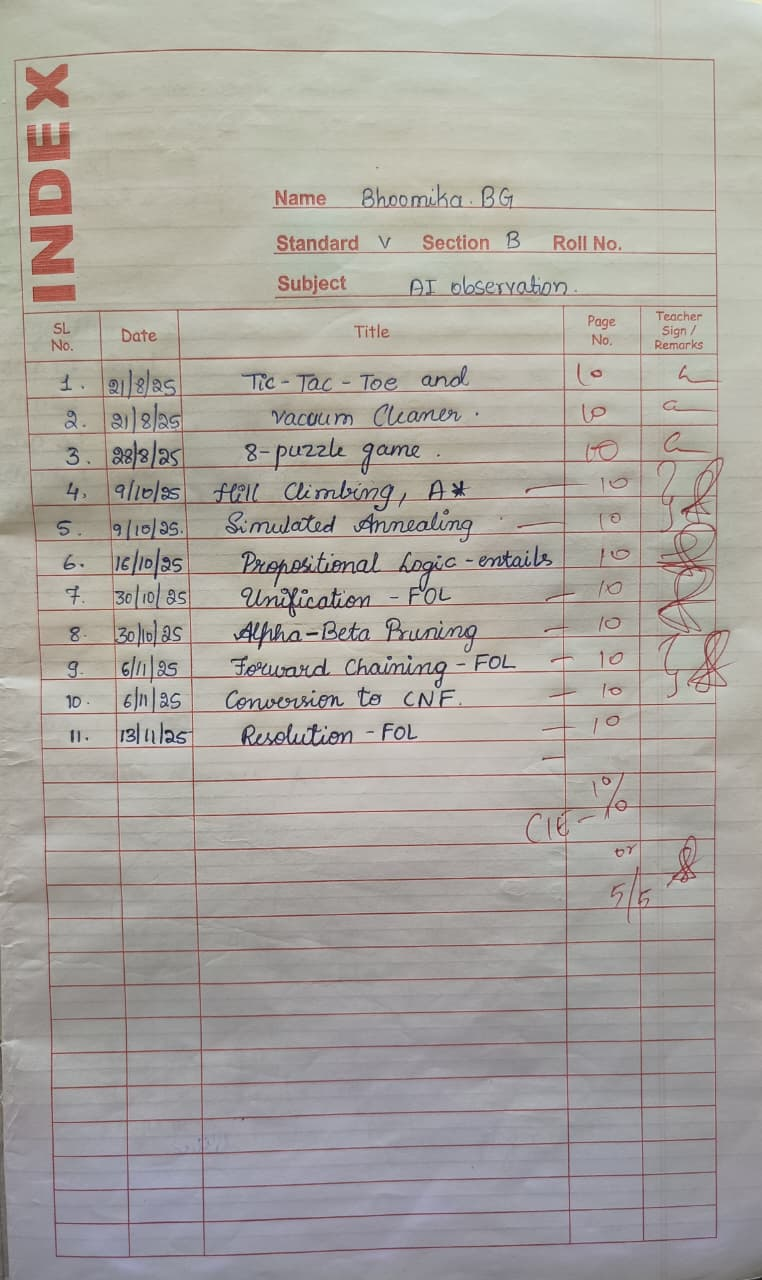 INDEX
Name Bhoomika. BG
Standard V Section B Roll No.
Subject AI observation.
SL No. Date Title Page No. Teacher Sign / Remarks
1. 21/8/25 Tic-Tac-Toe and 10
2. 21/8/25 vacuum Cleaner. 10
3. 28/8/25 8-puzzle game. 10
4. 9/10/25 Hill Climbing, A* — 10
5. 9/10/25. Simulated Annealing — 10
6. 16/10/25 Propositional Logic-entails 10
7. 30/10/25 Unification - FOL — 10
8. 30/10/25 Alpha-Beta Pruning — 10
9. 6/11/25 Forward Chaining - FOL — 10
10. 6/11/25 Conversion to CNF. — 10
11. 13/11/25 Resolution - FOL — 10
—
CIE - 10/10
or
5/5